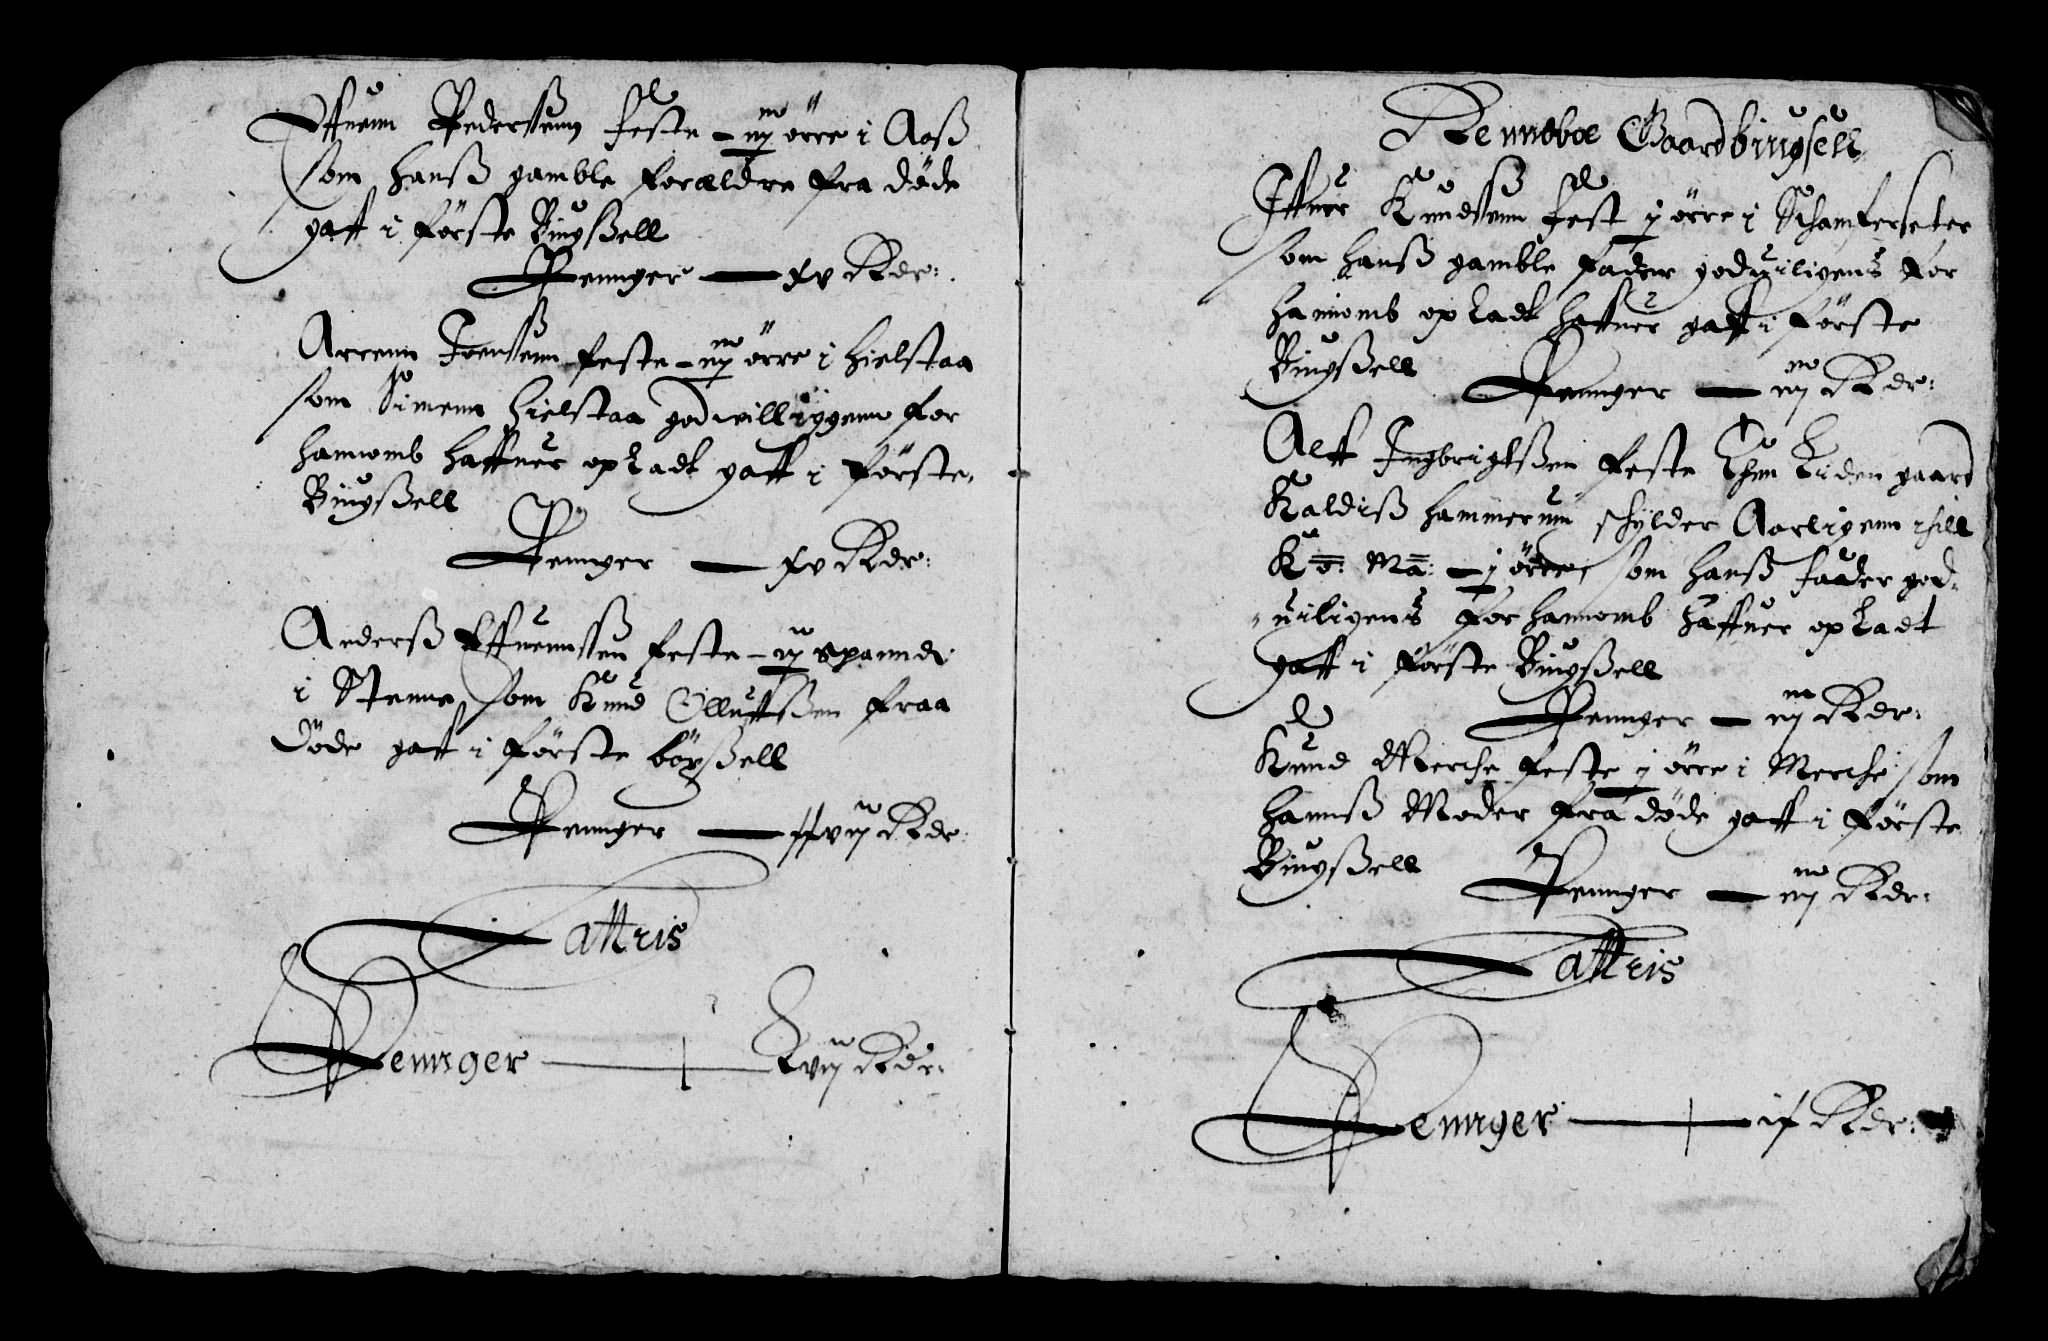 Effuenn Pederssenn feste – iij örre i Aaß
som hanß gamble foreældre fra döde
gaff i förste Bürgßell
Penger — xv Rdr:
Arrenn Joenssenn feste – iij örre i Hielstaa
som Simenn Hielstaa godwilliggenn for
hannomb haffuer opladt gaff i förste
Bügßell
Penger — xv Rdr:
Anderß Effuennssen feste – ij spannd
i Stenne som Knud Olluffßen fraa
döde gaff i förste böxßell
Penger — xxviij Rdr:
Lattris
Penger — Lviij Rdr:
Rennsboe Gaardbüugsell
Iffuer Knudssenn fest j örre i Schamferseter
som hanß gamble fader goduiligens for
hannomb opladt haffuer gaff i förste
Bügßell
Penger — iiij Rdr:
Alff Ingbrigtßen feste Een Liden gaard
Kaldiß Hammerum schylder Aarligenn till
Ko: Ma: – j örre, som hanß faader god-
uiligens for hannomb haffuer opladt
gaff i förste Bügßell
Penger – iij Rdr:
Knud Merche feste j örre i Merche som
hannß Moder fra döde gaff i förste
Bügßell
Penger — iiij Rdr:
Lattris
Penger — ix Rdr: